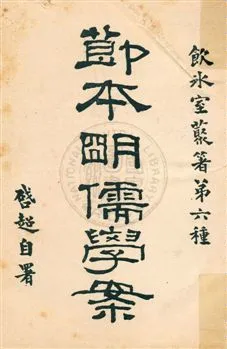 飲冰室叢箸第六種
節本明儒學案
啓超自署